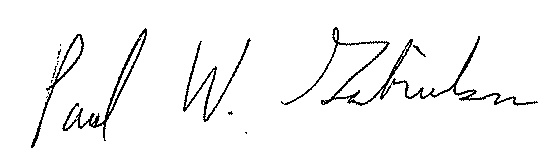 Paul W. Gabrielson